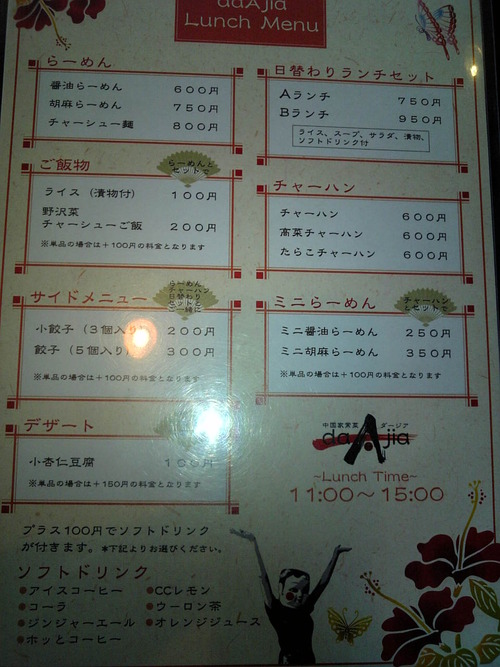 daAjia
Lunch Menu
らーめん
醤油らーめん 600円
胡麻らーめん 750円
チャーシュー麺 800円
ご飯物
らーめんと
セットで
ライス（漬物付） 100円
野沢菜
チャーシューご飯 200円
※単品の場合は＋100円の料金となります
サイドメニュー
らーめん
チャーハン
日替わり
セットと
ご一緒に
小餃子（3個入り） 200円
餃子（5個入り） 300円
※単品の場合は＋100円の料金となります
デザート
小杏仁豆腐 100円
※単品の場合は＋150円の料金となります
プラス100円でソフトドリンク
が付きます。＊下記よりお選びください。
ソフトドリンク
●アイスコーヒー ●CCレモン
●コーラ ●ウーロン茶
●ジンジャーエール ●オレンジジュース
●ホッとコーヒー
日替わりランチセット
Aランチ 750円
Bランチ 950円
ライス、スープ、サラダ、漬物、
ソフトドリンク付
チャーハン
チャーハン 600円
高菜チャーハン 600円
たらこチャーハン 600円
ミニらーめん
チャーハン
とセットで
ミニ醤油らーめん 250円
ミニ胡麻らーめん 350円
※単品の場合は＋100円の料金となります
中国家常菜 ダージア
daAjia
~Lunch Time~
11:00～15:00